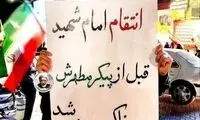 انتقام امام شهید
قبل از پیکر مطهرش
شد